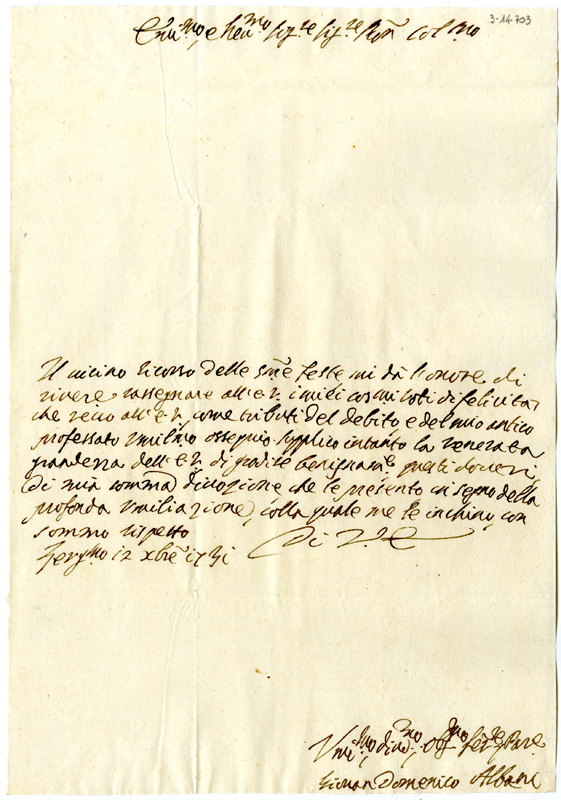 3-14.703
Em.mo, e Rev.mo Sig.re Sig.re Pron Col.mo
Il vicino ricorso delle S.me Feste mi dà l'onore di
rassegnare all'E.V. i miei voti di felicità,
che reco all'E.V. come tributi del debito, e del mio antico
professato umil.mo ossequio. Supplico intanto la venerata
grandezza dell'E.V. di gradire benignam.te questi doveri
di mia somma divozione che le presento in segno della
profonda umiliazione, colla quale me le inchino, con
sommo rispetto
Berg.mo 12 xbre 1731 Di V.E.
Um.mo, div.mo, obg.mo
Giovan Domenico Albani